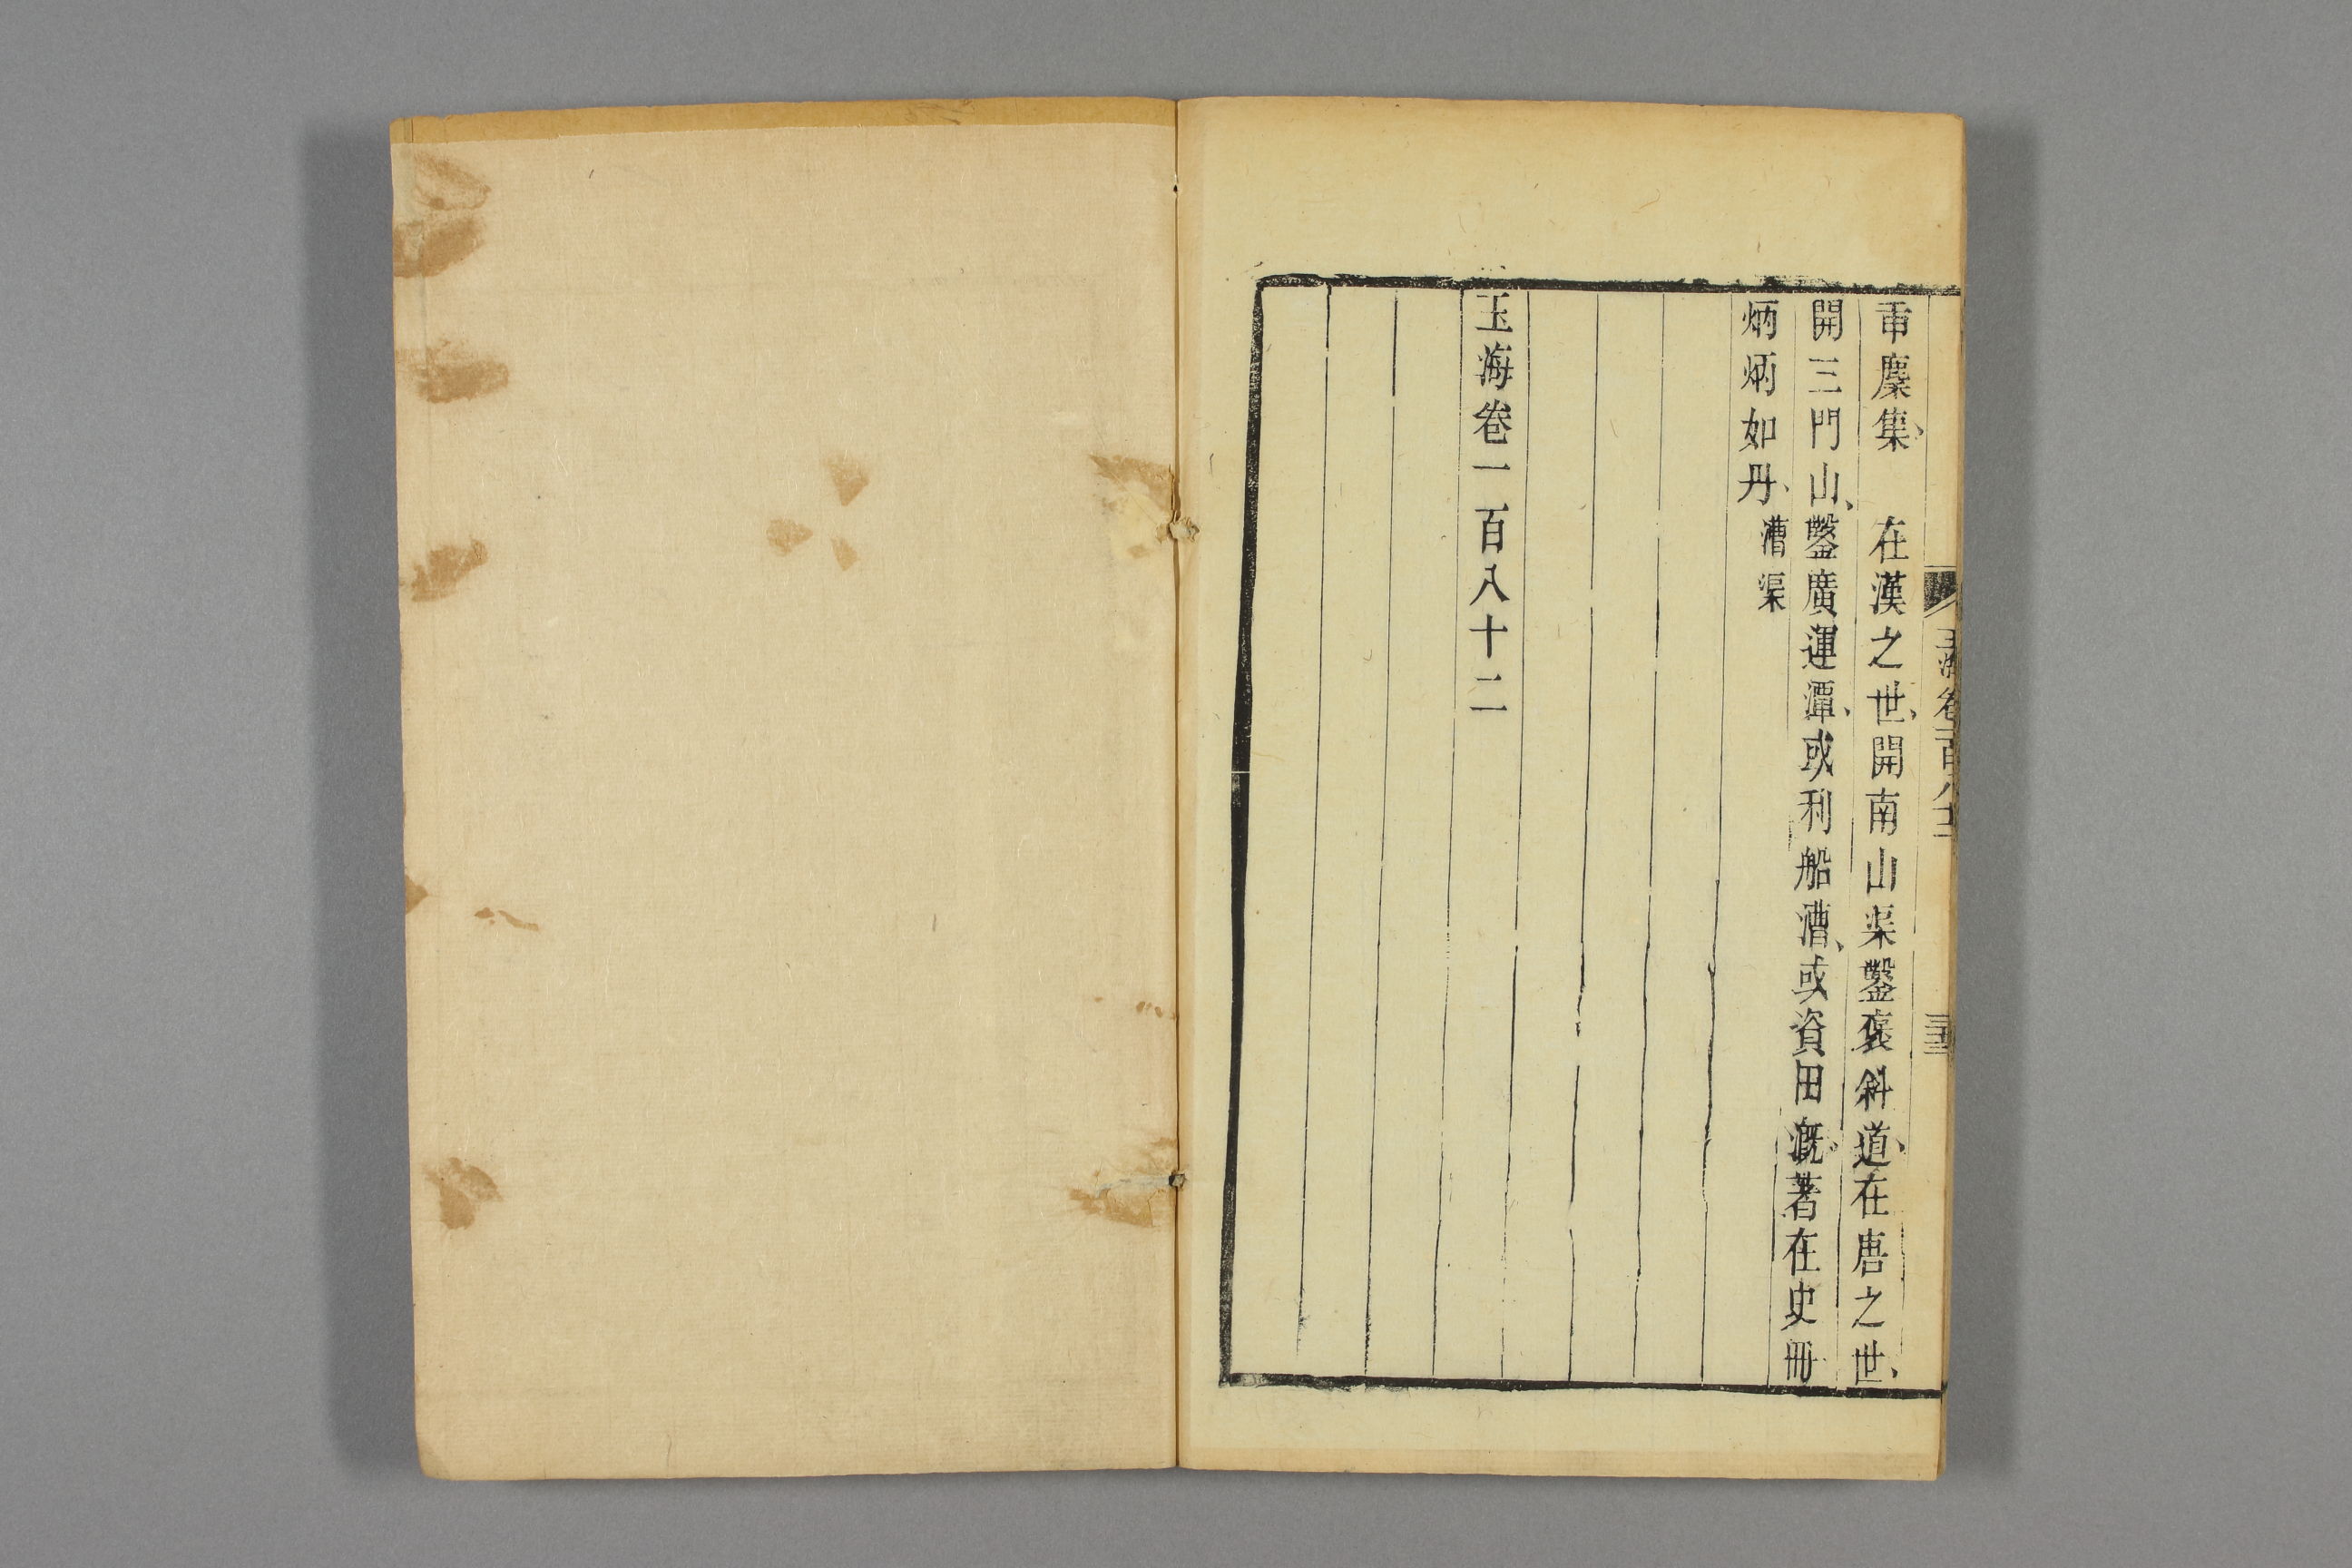 帀麇集、　在漢之世、開南山渠鑿褒斜道、在唐之世、
開三門山、鑿廣運潭、或利船漕、或資田溉、著在史冊
炳炳如丹、漕渠
玉海卷一百八十二